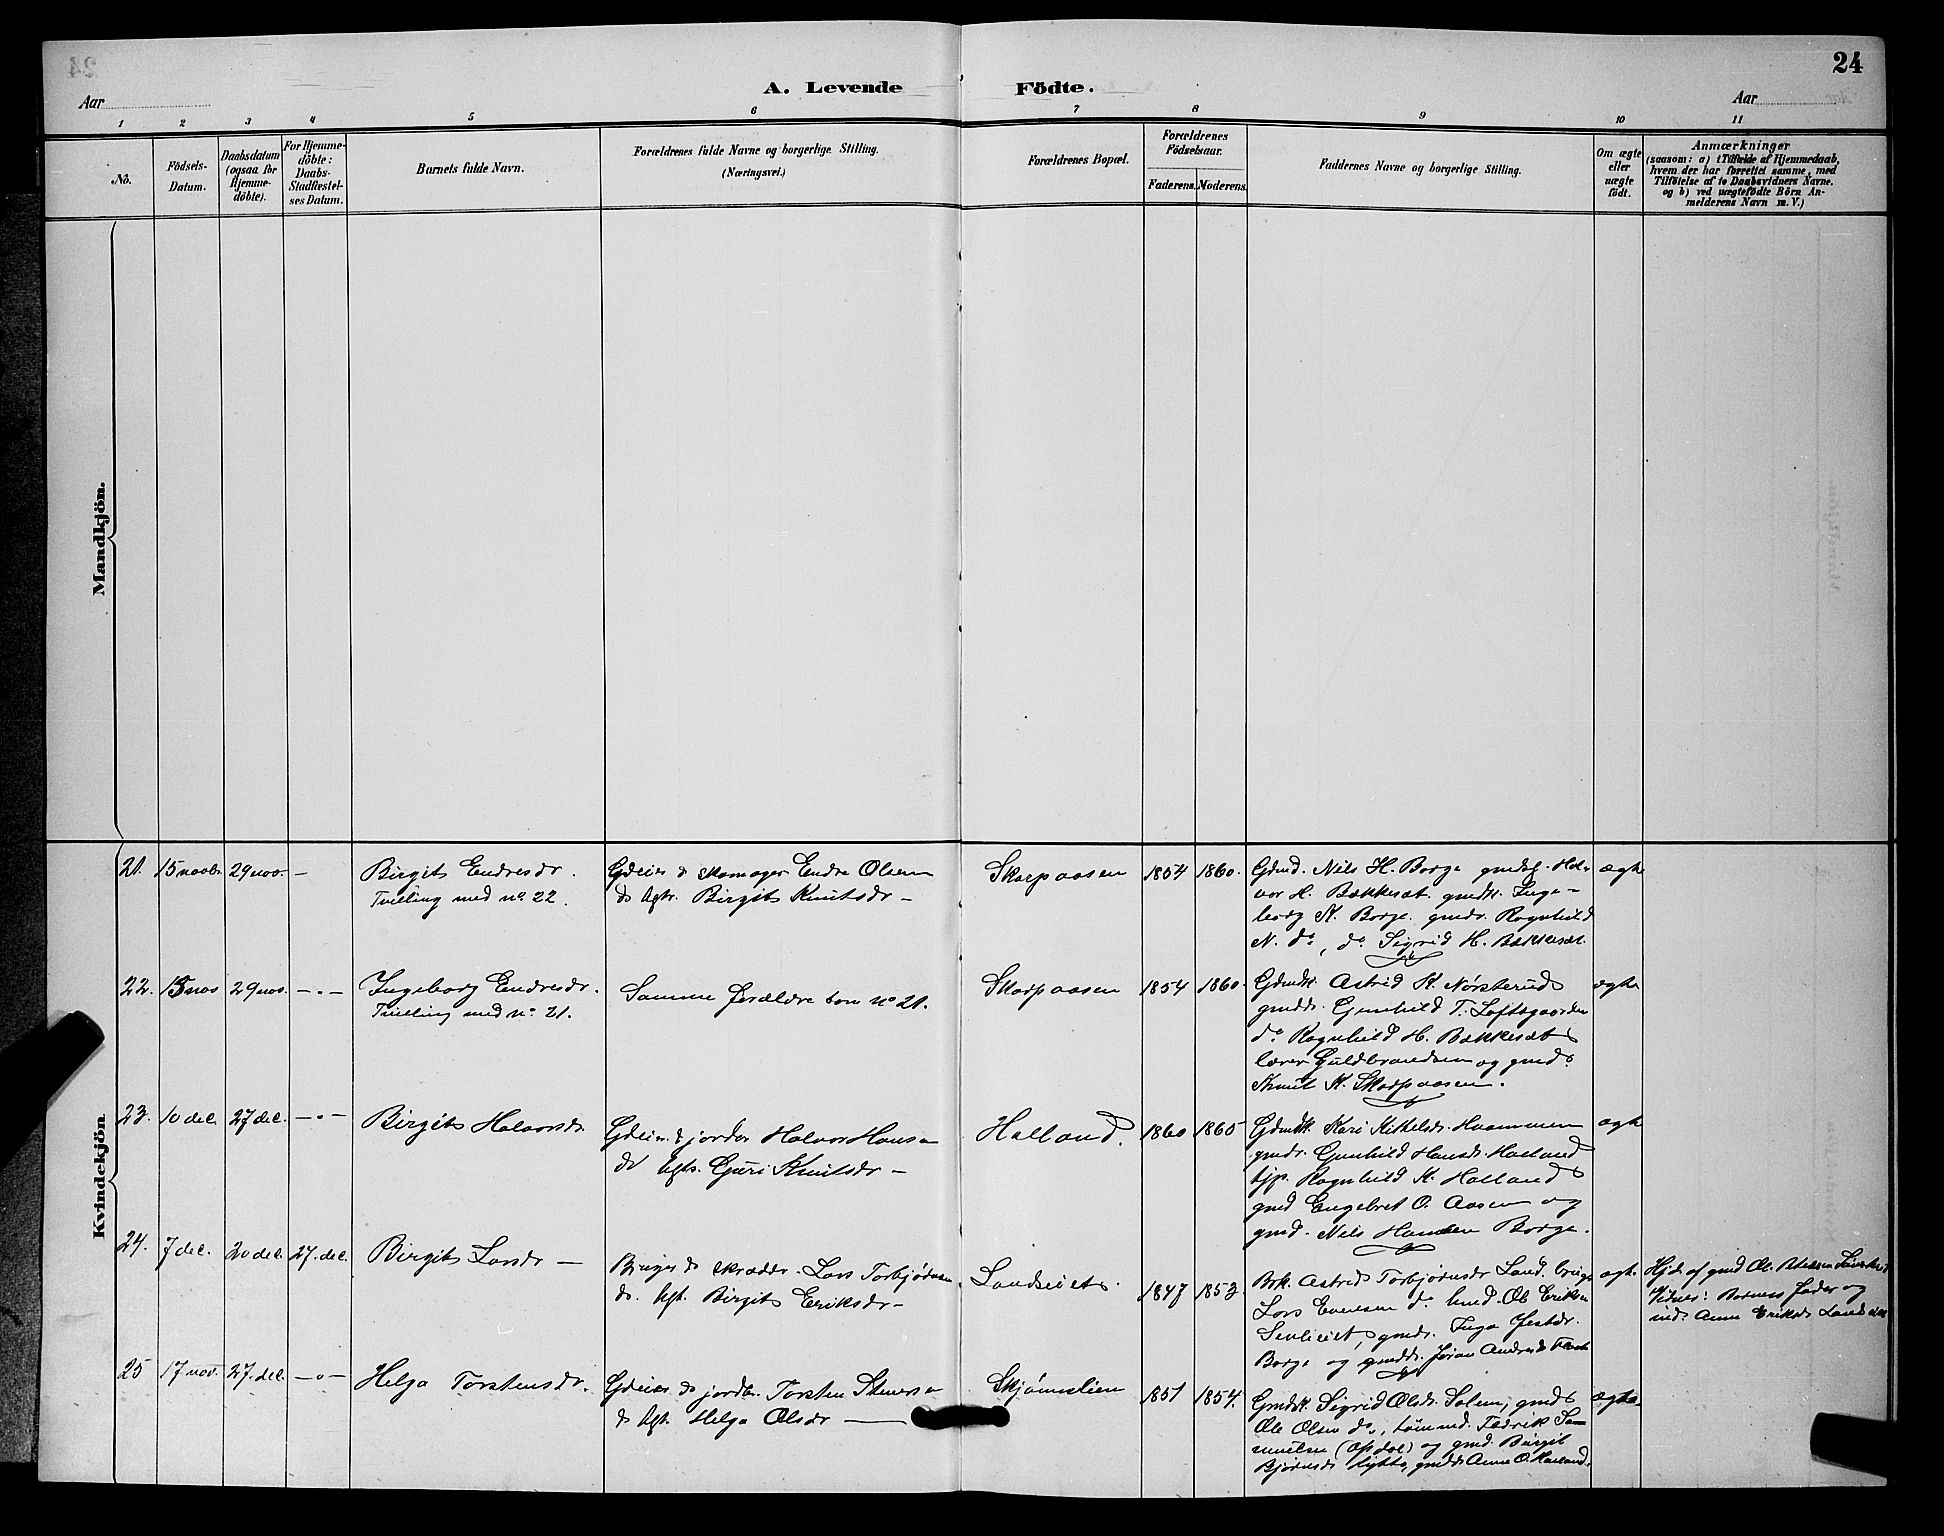 24
A. Levende Födte.
Aar
Aar
1 2 3 4 5 6 7 8 9 10 11
No.
Födsels-
Datum.
Daabsdatum
(ogsaa for
Hjemme-
döbte).
For Hjemme-
döbte:
Daabs-
Stadfæstel-
ses Datum.
Barnets fulde Navn.
Forældrenes fulde Navne og borgerlige Stilling.
(Næringsvei.)
Forældrenes Bopæl.
Forældrenes
Födselsaar.
Faderens. Moderens.
Faddernes Navne og borgerlige Stilling.
Om ægte
eller
uægte
födt.
Anmærkninger
(saasom: a) i Tilfælde af Hjemmedaab,
hvem der har forrettet samme, med
Tilföielse af to Daabsvidners Navne.
og b) ved uægtefödte Börn An-
melderens Navn m. V.)
Mandkjön.
Kvindekjön
21. 15 novbr. 29 nov. —
Birgit Endresdr.
Tvilling med no 22.
Gdeier & skomager Endre Olsen
& hstr. Birgit Knutsdr —
Skarpaasen
1854 1860.
Gdmd. Nils H. Borge gmdsf. Hal-
vor H. Bækkesæt. gmdk. Inge-
borg K. Borge. gmdr. Ragnhild
N. do, do Sigrid H. Bækkesæt.
ægte
22. 15 nov 29 nov. — " —
Ingeborg Endresdr.
Tvilling med no. 21.
Samme forældre som no 21.
Skarpaasen
1854 1860.
Gdmdk. Astrid K. Nørsterud
gmdd. Gunhild T. Loftsgaarden
do Ragnhild H. Bækkesæt
lærer Guldbrandsen og gmds
Knut K. Skarpaasen.
ægte
23. 10 dec. 27 dec. — " —
Birgit Halvorsdr.
Gdeier & jordbr Halvor Hansen
& hst. Guri Knutsdr —
Halland.
1860 1865
Gdmdk. Kari Kittelsdr. Haammen
gmdr. Gunhild Hansdr. Halland
tjp. Ragnhild K. Halland
gmd Engebret O. Aasen og
gmd. Nils Hansen Borge.
ægte
24. 7 dec. 20 dec. 27. dec.
Birgit Larsdr —
Bruger & skrædder Lars Torbjørnsen
& hst. Birgit Eriksdr —
Landseiet
1847 1853.
Brk. Astrid Torbjørnsdr Land. bruger
Lars Evensen do hmd. Ole Eriksen
Sevleeiet, gmdr. Inga
Borge og gmdd. Jøran Andresdr
ægte
Hjd. af gmd Ol.
Vidner: Barnets fader og
inds. Anne Eriksdr
25 17 nov. 27. dec. — " —
Helga Torstensdr.
Gdeier & jordbr. Torsten Steners
& hst. Helga Olsdr —
Skjønnelien
1851 1854.
Gmdk. Sigrid Olsdr. Solem, gmds
Ole Olsen do, tømmd. Fedrik Sa-
muelsen (Opdal) og gmd. Birgit
Bjørnsdr Hytta, gmdd Anne O. Haaland.
ægte